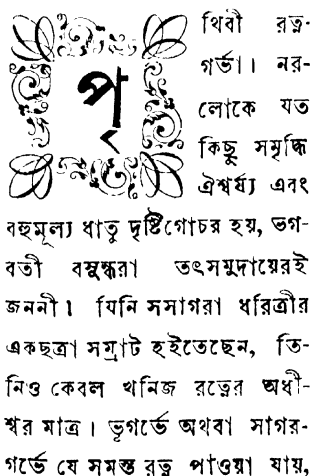 পৃথিবী রত্ন-
গর্ভা। নর-
লোকে যত
কিছু সমৃদ্ধি
ঐশ্বর্য্য এবং
বহুমূল্য ধাতু দৃষ্টিগোচর হয়, ভগ-
বতী বসুন্ধরা তৎসমুদায়েরই
জননী। যিনি সসাগরা ধরিত্রীর
একছত্রা সম্রাট হইতেছেন, তি-
নিও কেবল খনিজ রত্নের অধী-
শ্বর মাত্র। ভূগর্ভে অথবা সাগর-
গর্ভে যে সমস্ত রত্ন পাওয়া যায়,